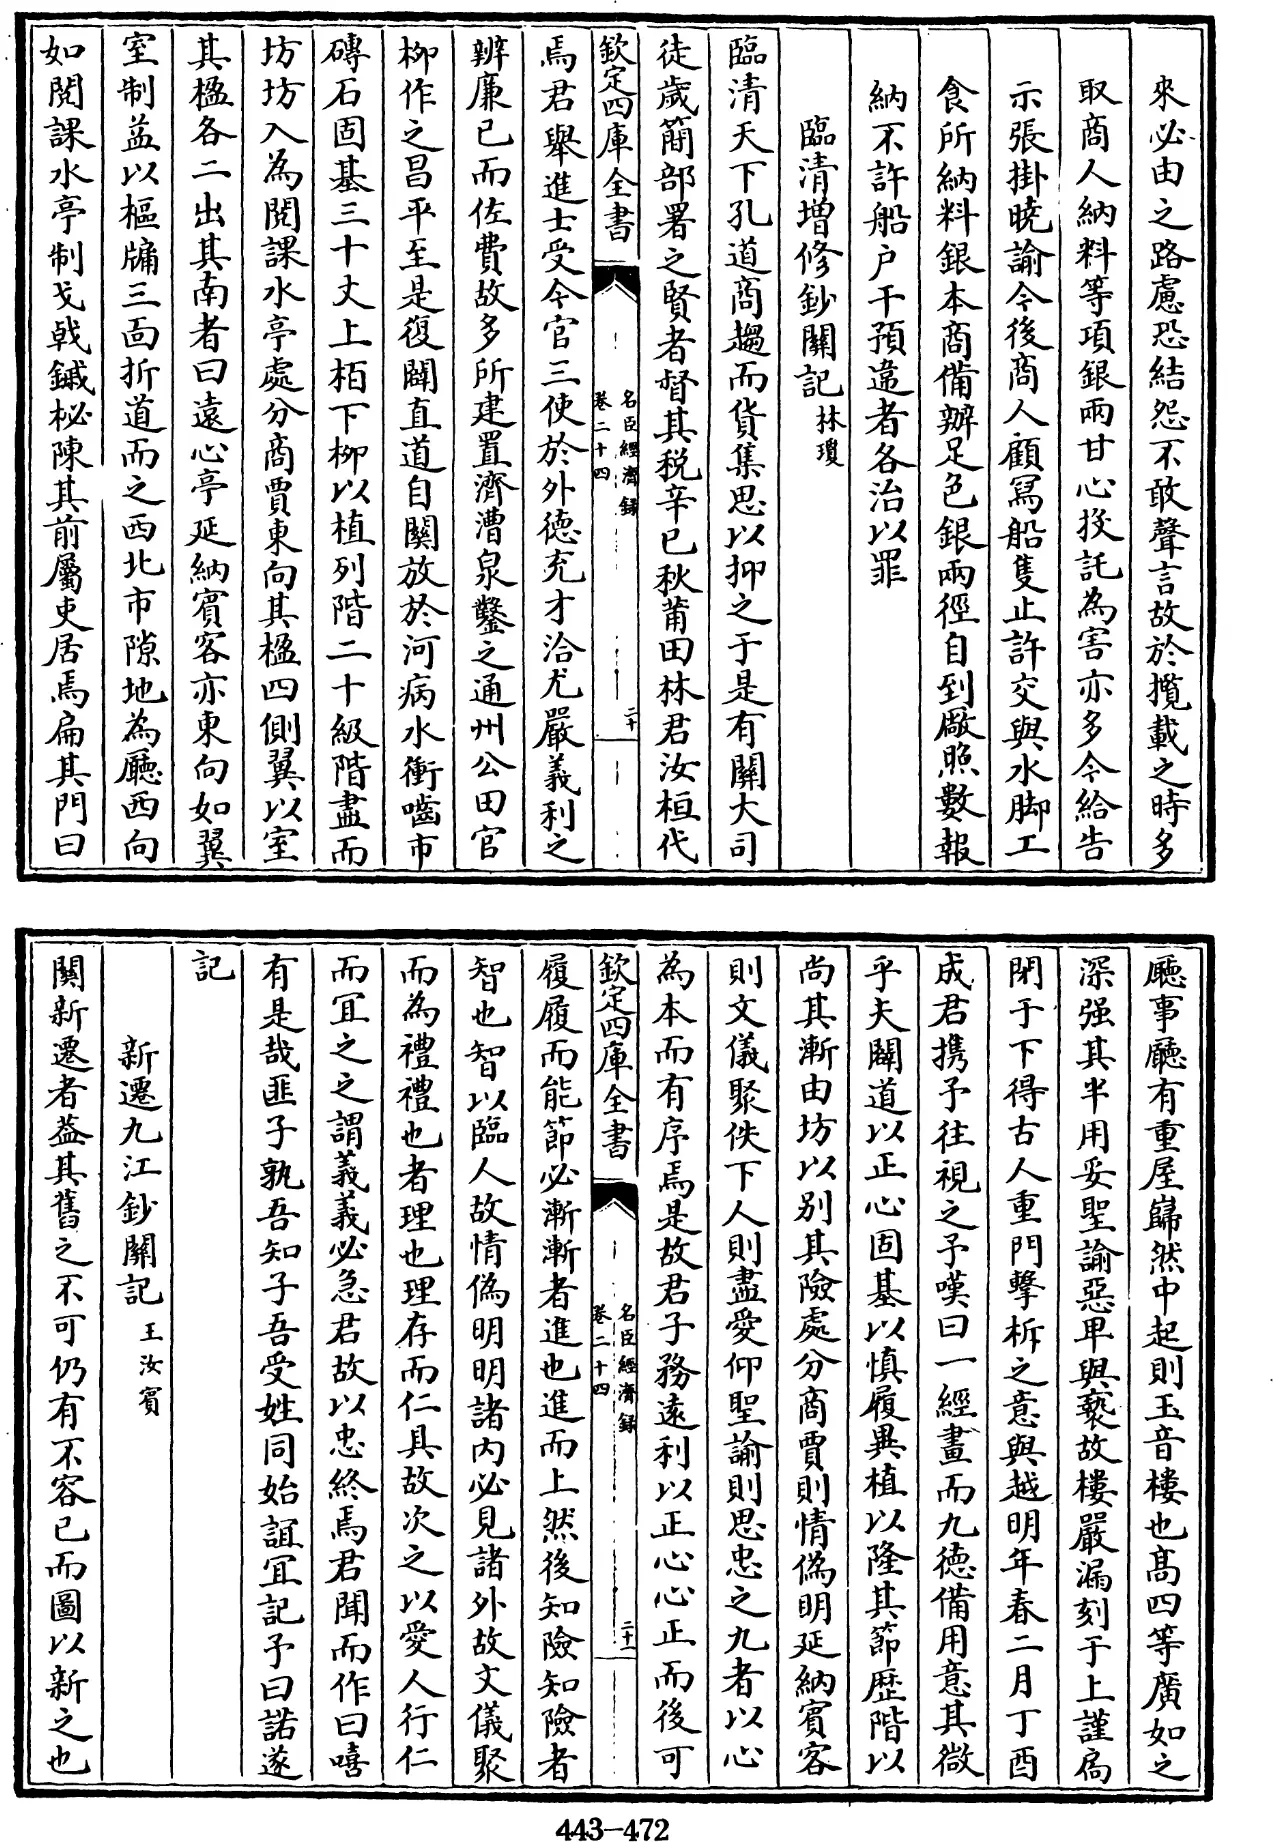 來必由之路慮恐結怨不敢聲言故於攬載之時多
取商人納料等項銀兩甘心投託為害亦多今給告
示張掛曉諭今後商人顧寫船隻止許交與水脚工
食所納料銀本商備辦足色銀兩徑自到厰照數報
納不許船户干預違者各治以罪
臨清增修鈔關記林瓊
臨清天下孔道商趨而貨集思以抑之于是有關大司
徒歲簡部署之賢者督其税辛巳秋莆田林君汝桓代
欽定四庫全書
名臣經濟録
卷二十四
二十
焉君舉進士受令官三使於外德充才洽尤嚴義利之
辨廉已而佐費故多所建置濟漕泉鑿之通州公田官
柳作之昌平至是復闢直道自關放於河病水衝嚙市
磚石固基三十丈上栢下柳以植列階二十級階盡而
坊坊入為閱課水亭處分商賈東向其楹四側翼以室
其楹各二出其南者曰遠心亭延納賓客亦東向如翼
室制益以樞牖三面折道而之西北市隙地為廳西向
如閱課水亭制戈戟鏚柲陳其前屬吏居焉扁其門曰
廳事廳有重屋巋然中起則玉音樓也髙四等廣如之
深强其半用妥聖諭惡卑與褻故樓嚴漏刻于上謹扃
閉于下得古人重門擊柝之意與越明年春二月丁酉
成君携予往視之予嘆曰一經畫而九德備用意其微
乎夫闢道以正心固基以慎履異植以隆其節歴階以
尚其漸由坊以别其險處分商賈則情偽明延納賓客
則文儀聚佚下人則盡愛仰聖諭則思忠之九者以心
為本而有序焉是故君子務遠利以正心心正而後可
欽定四庫全書
名臣經濟録
卷二十四
二十一
履履而能節必漸漸者進也進而上然後知險知險者
智也智以臨人故情偽明明諸内必見諸外故文儀聚
而為禮禮也者理也理存而仁具故次之以愛人行仁
而宜之之謂義義必急君故以忠終焉君聞而作曰嘻
有是哉匪子孰吾知子吾受姓同始誼宜記予曰諾遂
記
新遷九江鈔關記王汝賓
關新遷者葢其舊之不可仍有不容已而圖以新之也
443-472